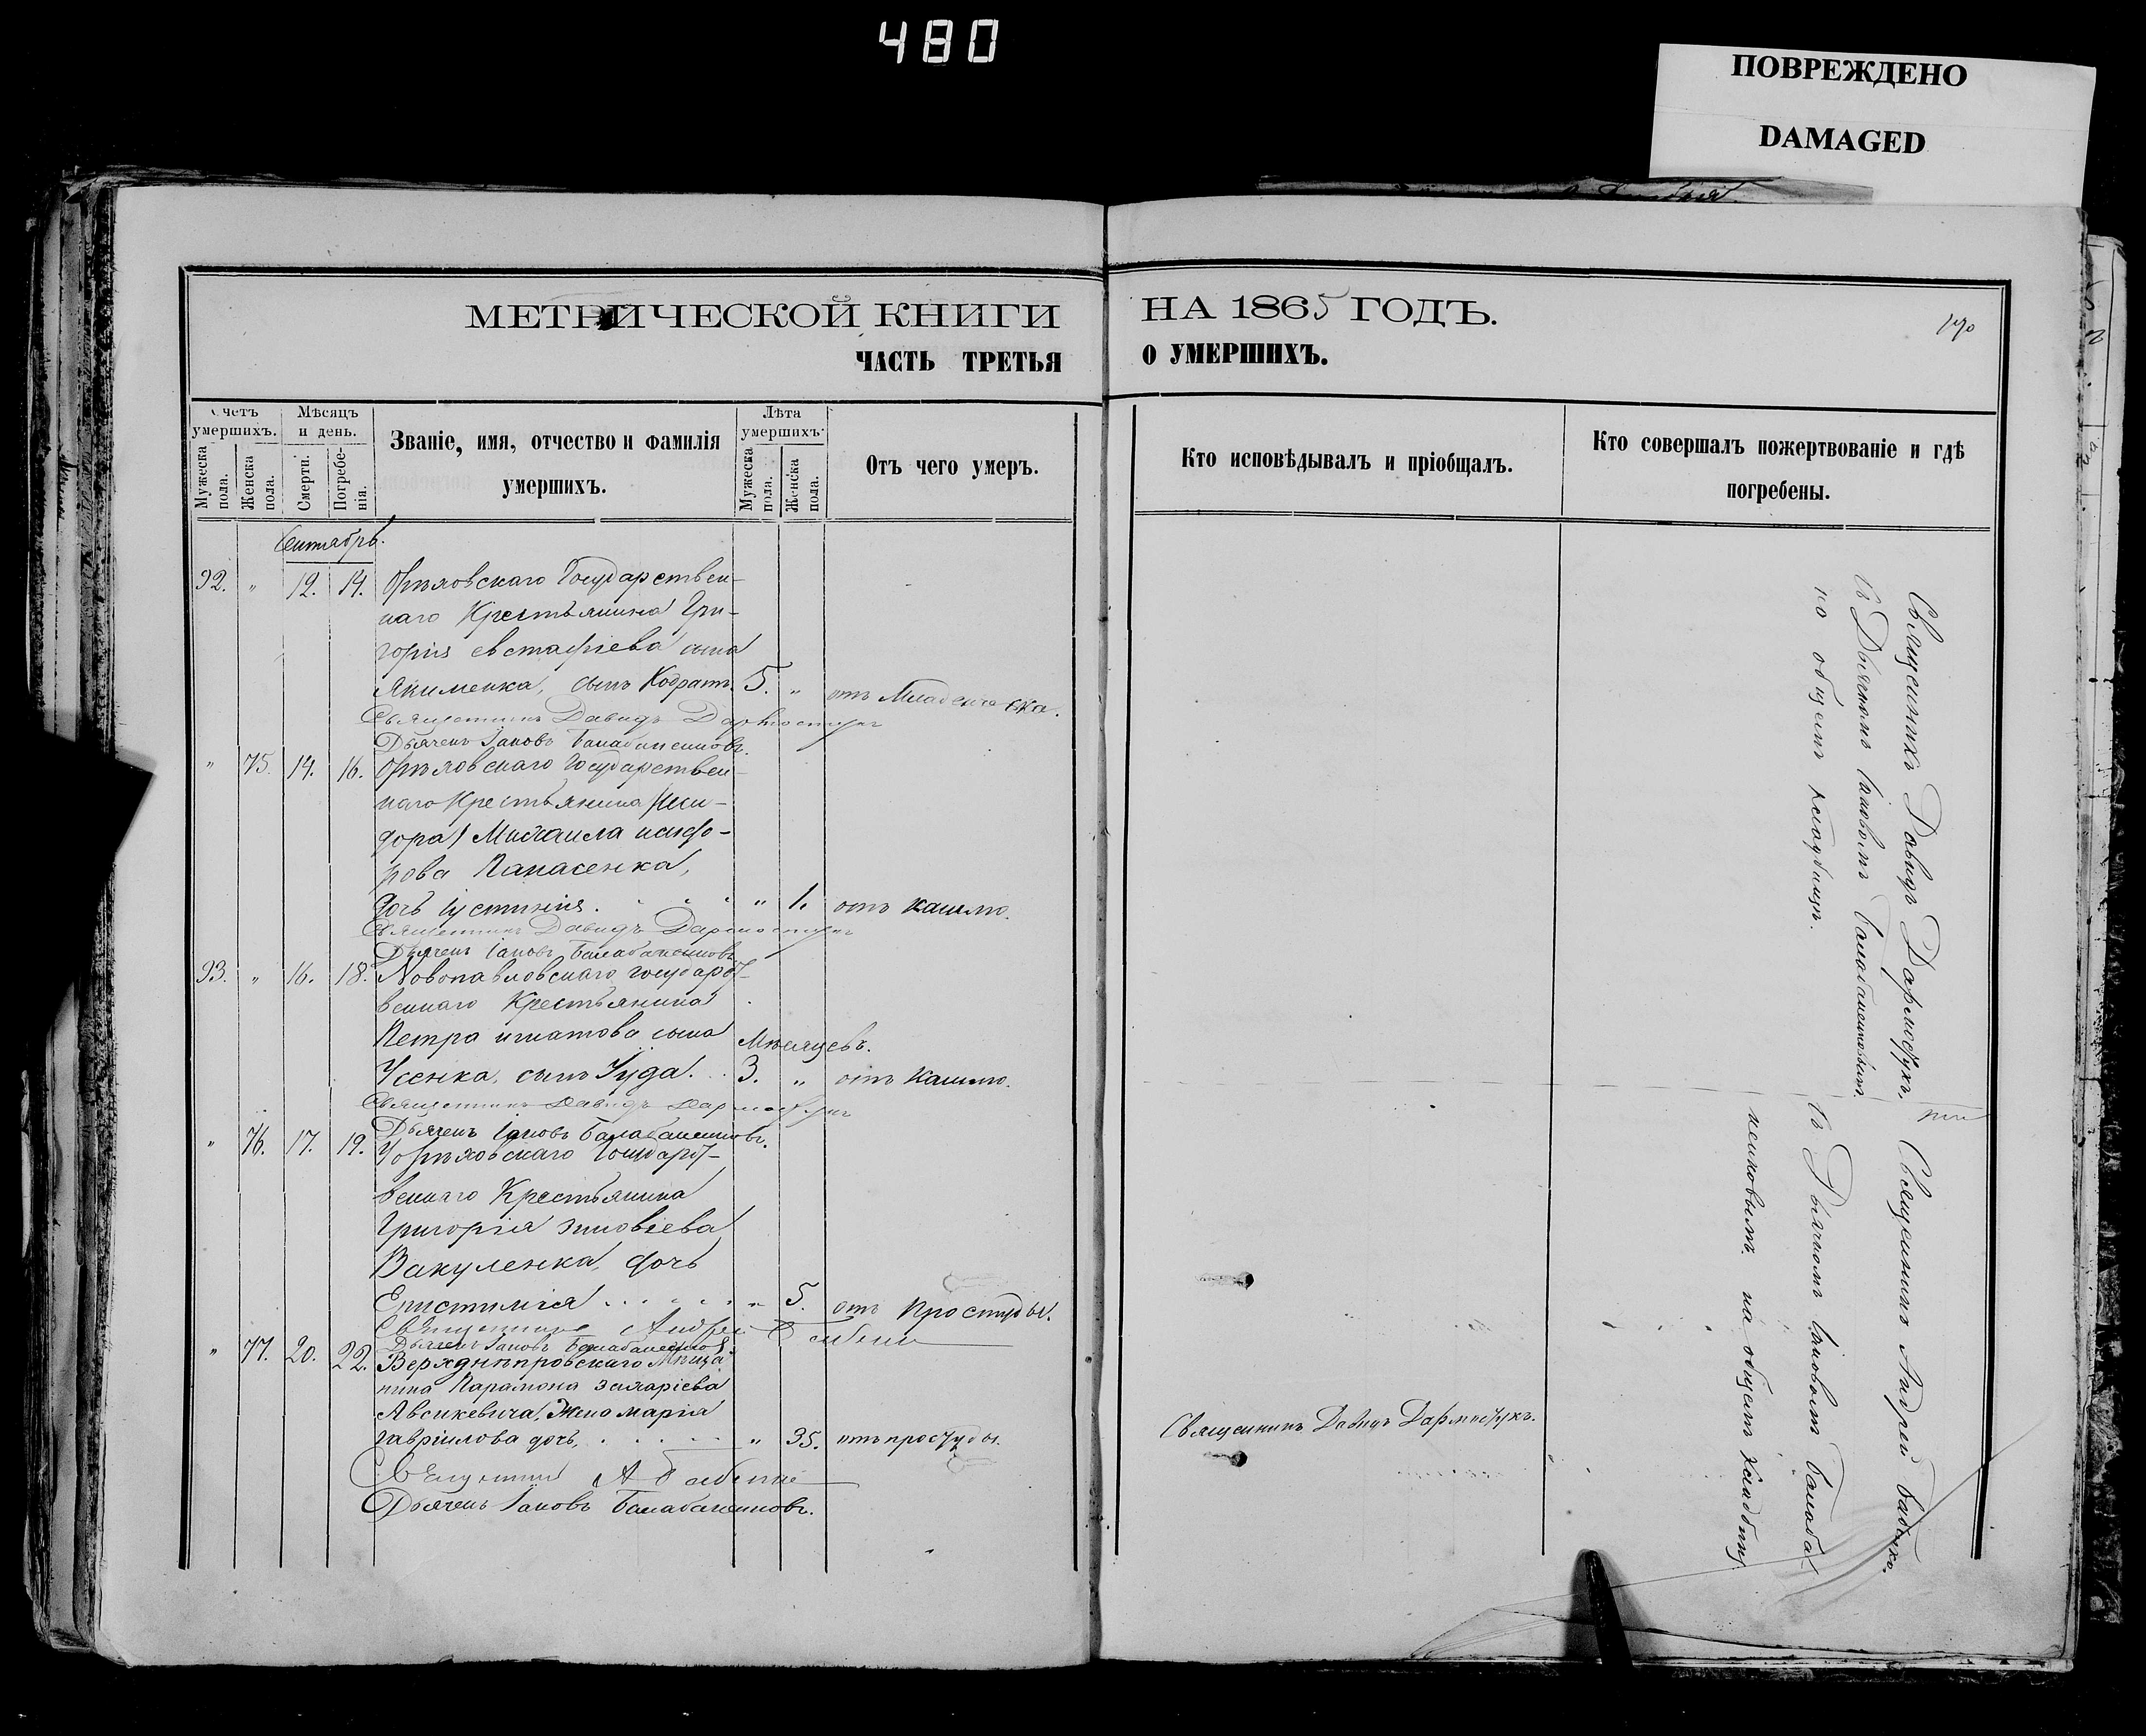 480
ПОВРЕЖДЕНО
DAMAGED
МЕТРИЧЕСКОЙ КНИГИ НА 1865 ГОДЪ.
ЧАСТЬ ТРЕТЬЯ О УМЕРШИХЪ.
Счетъ умершихъ.
Мужеска пола.
Женска пола.
Мѣсяцъ и день.
Смерти.
Погребенія.
Званіе, имя, отчество и фамилія умершихъ.
Лѣта умершихъ.
Мужеска пола.
Женска пола.
Отъ чего умеръ.
Кто исповѣдывалъ и пріобщалъ.
Кто совершалъ пожертвованіе и гдѣ погребены.
Сентябрь.
92. " 12. 14. Орѣховскаго Государствен-
наго Крестьянина Гри-
горія евстафіева сына
Якименка, сынъ Кодратъ. 5. " отъ Младенческа.
Священникъ Давидъ Дармостукъ
Дьячекъ Іаковъ Балабаненковъ.
" 75. 14. 16. Орѣховскаго Государствен-
наго Крестьянина /Иси-
дора/ Михаила
Панасенка,
дочь іустинія. " 1. отъ кашлю.
Священникъ Давидъ Дармостукъ
Дьячекъ Іаковъ Балабаненковъ
93. " 16. 18. Новопавловскаго государст-
веннаго Крестьянина
Петра игнатова сына Мѣсяцевъ.
Усенка, сынъ Іуда. 3. " отъ Кашлю.
Священникъ Давидъ Дармостукъ
Дьячекъ Іаковъ Балабаненковъ.
" 76. 17. 19. Орѣховскаго Государст-
веннаго Крестьянина
Григорія зиновіева
Вакуленка, дочь
Епистимія " 5. отъ простуды.
Священникъ Андрей Бабенко
Дьячекъ Іаковъ Балабаненковъ
" 77. 20. 22. Верхднѣпровскаго Мѣща
нина Парамона захаріева
Авсикевича, Жена марія
гавріилова дочь, " 35. отъ простуды. Священникъ Давидъ Дармостукъ.
Священникъ А Бабенко
Дьячекъ Іаковъ Балабаненковъ.
Священникъ Давидъ Дармостукъ,
съ Дьячкомъ Іаковомъ Балабаненковымъ
на общемъ кладбищѣ.
Священникъ Андрей Бабенко.
съ Дьячкомъ Іаковомъ Балаба
ненковымъ на общемъ кладбищѣ